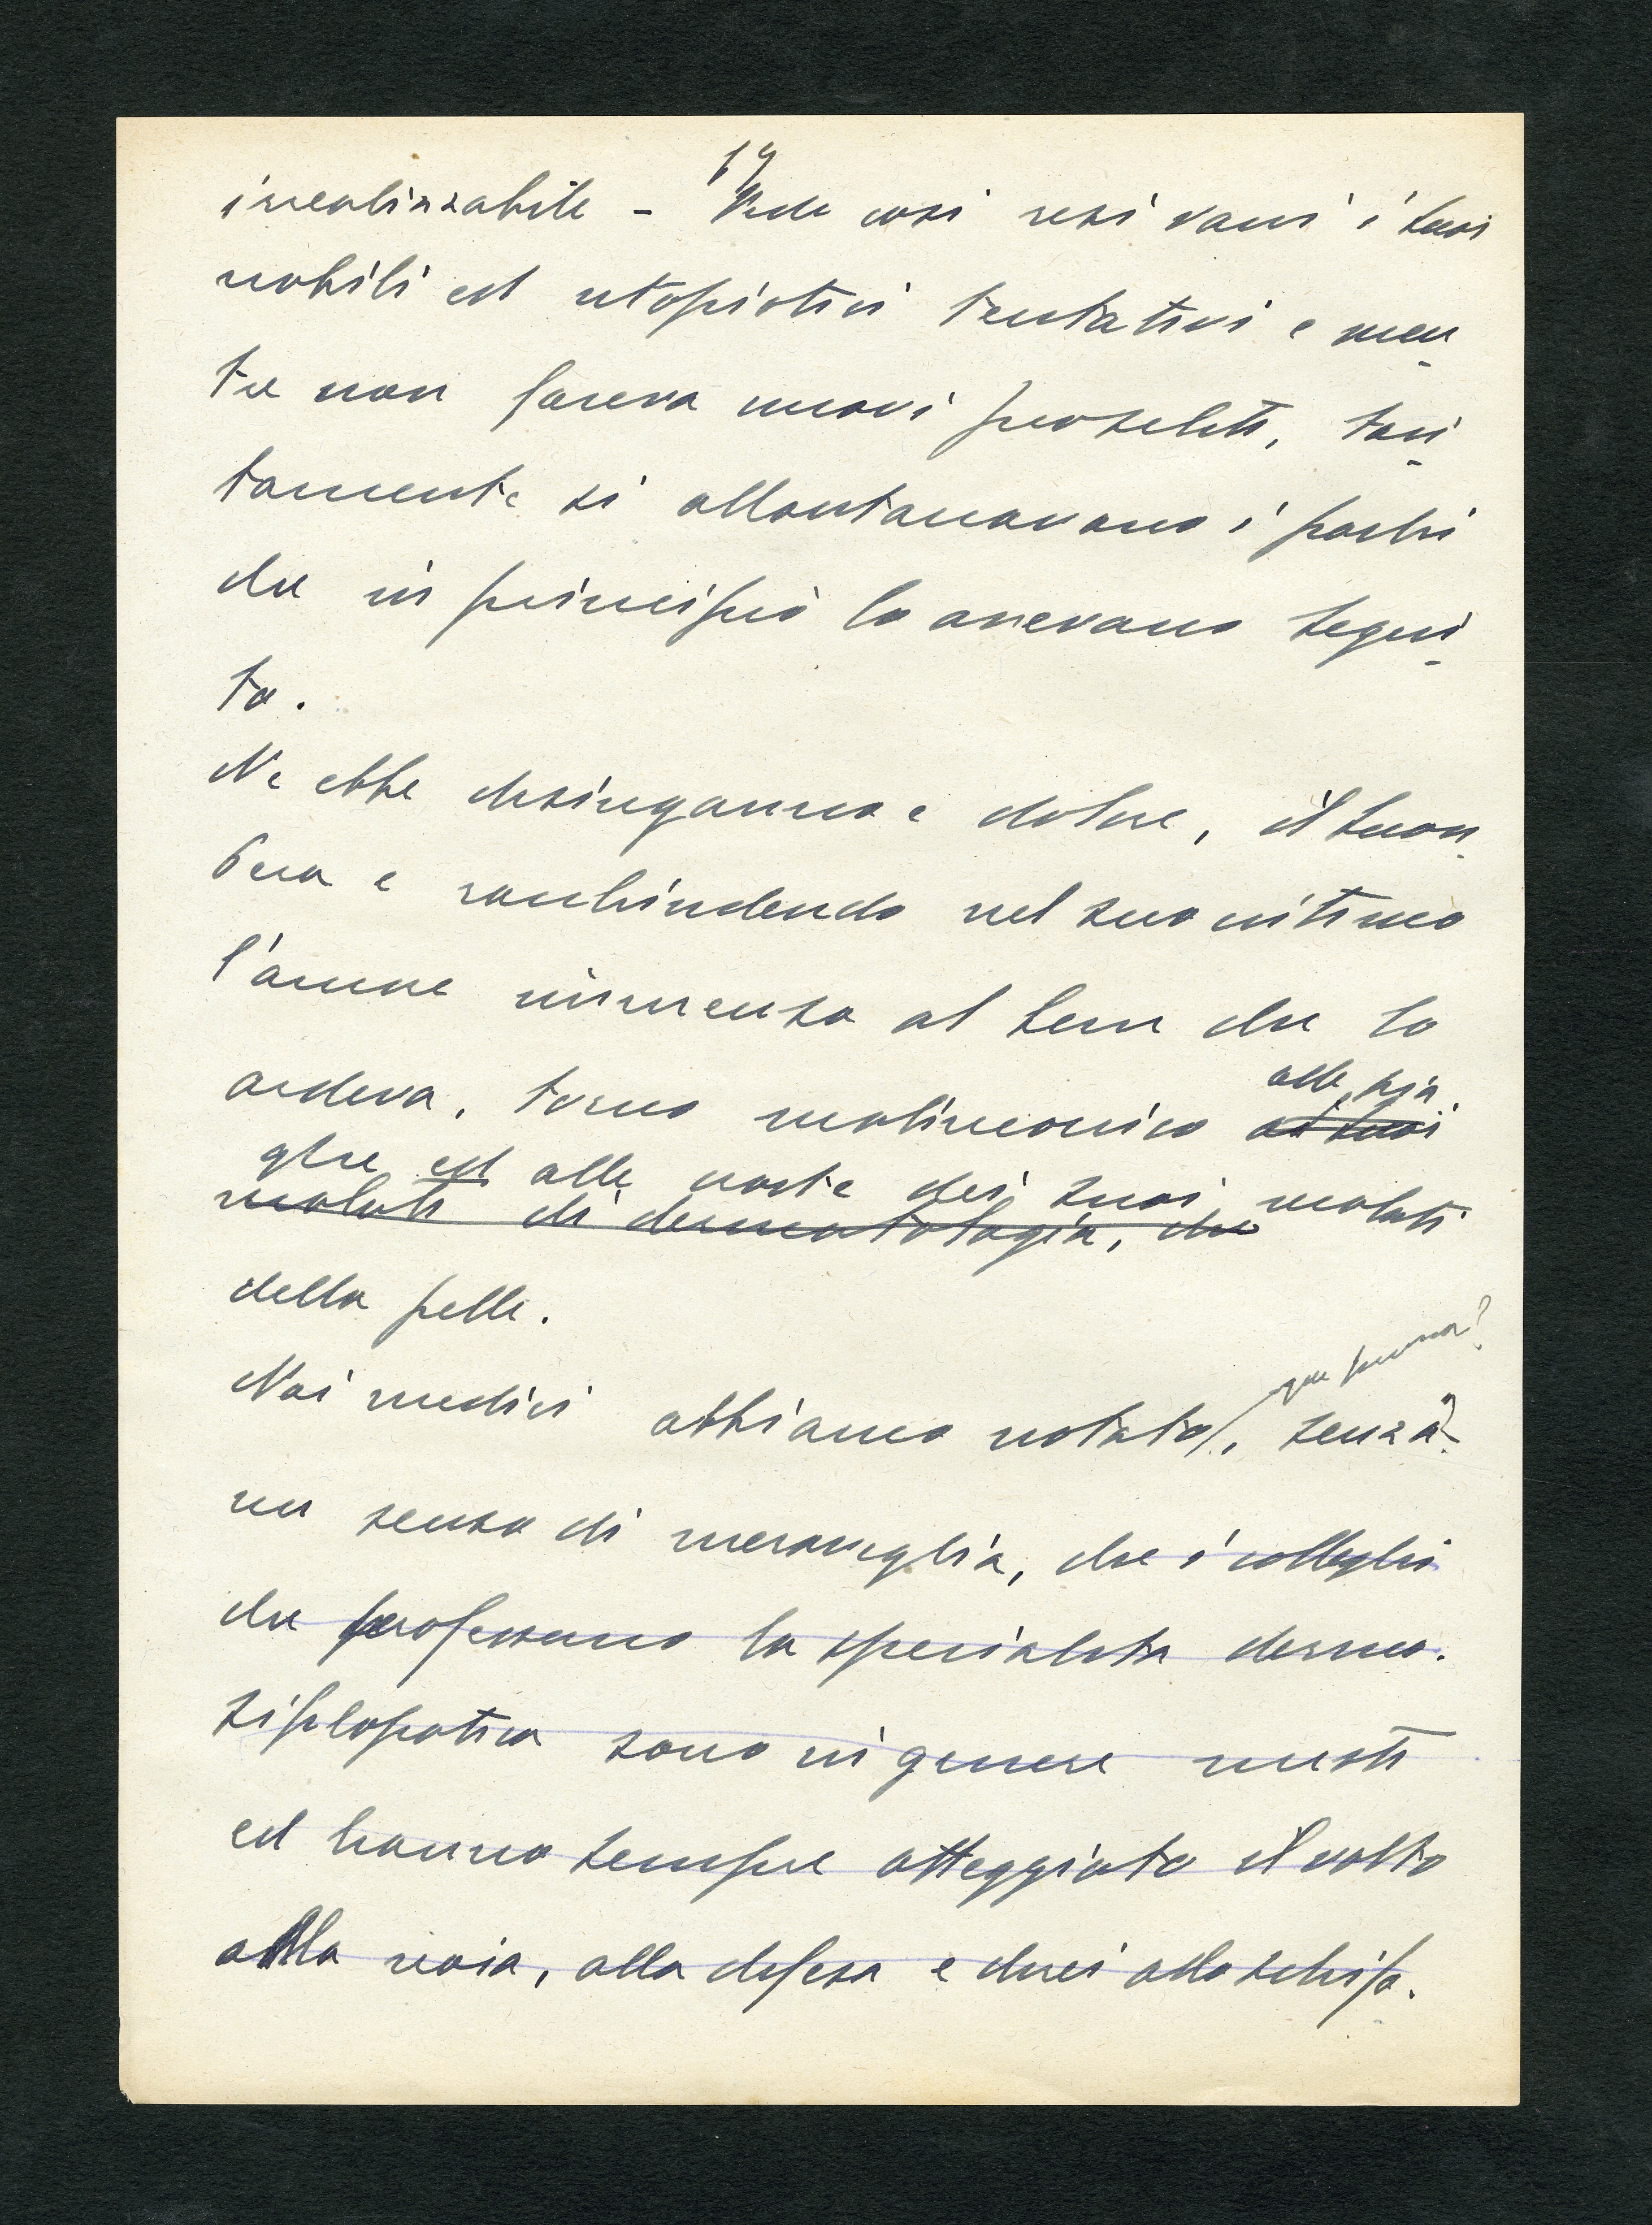 19
irrealizzabile - Vide così resi vani i suoi
nobili ed utopistici tentativi e men
tre non faceva nuovi proseliti, taci
tamente si allontanavano i pochi
che in principio lo avevano segui
to.
Ne ebbe disinganno e dolore, il buon
e racchiudendo nel suo intimo
l'amore immenso al bene che lo
ardeva, torno malinconico ai suoi
alle pia
ghe ed alle noste dei suoi malati
malati di dermatologia, che
della pelle.
Noi medici abbiamo notato, senza
un senso di meraviglia, che i colleghi
che professano la specialità dermo.
sifilopatica sono in genere mesti
ed hanno sempre atteggiato il volto
alla noia, alla difesa e direi allo schifo.